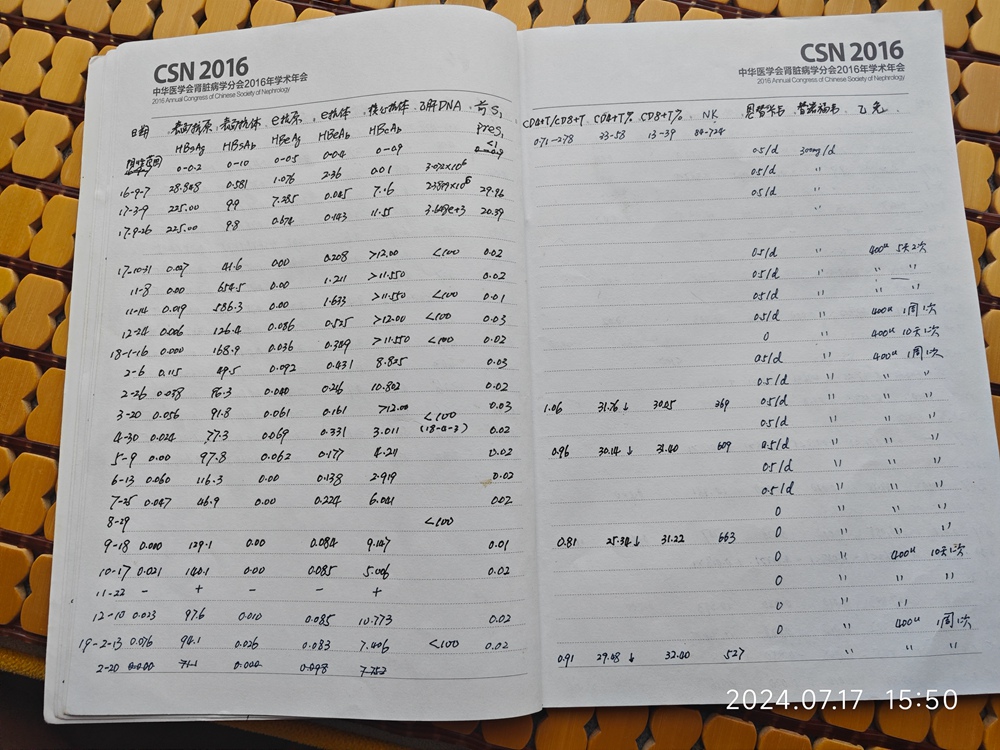 CSN 2016
中华医学会肾脏病学分会2016年学术年会
2016 Annual Congress of Chinese Society of Nephrology
日期 表面抗原 表面抗体 e抗原 e抗体 核心抗体 乙肝DNA 前S1
HBsAg HBsAb HBeAg HBeAb HBcAb PreS1
0-0.2 0-10 0-0.5 0-0.4 0-0.9 <1
16-9-7 28.848 0.581 1.076 2.36 0.01
17-3-9 225.00 99 7.285 0.045 7.16 29.96
17-9-26 225.00 98 0.674 0.143 11.55 20.39
17-10-31 0.027 41.6 0.00 0.208 >12.00 <100 0.02
11-8 0.00 654.5 0.00 1.211 >11.550 0.02
11-14 0.019 586.3 0.00 1.633 >11.550 <100 0.01
12-24 0.006 126.4 0.086 0.525 >12.00 <100 0.03
18-1-16 0.000 168.9 0.036 0.349 >11.550 <100 0.02
2-6 0.115 49.5 0.092 0.431 8.825 0.03
2-26 0.038 96.3 0.040 0.216 10.802 0.02
3-20 0.056 91.8 0.061 0.161 >12.00 <100 0.03
4-30 0.024 77.3 0.069 0.331 3.011 (18-4-3) 0.02
5-9 0.00 97.8 0.062 0.177 4.211 0.02
6-13 0.060 116.3 0.00 0.138 2.919 0.02
7-25 0.047 46.9 0.00 0.224 6.041 0.02
8-29 <100
9-18 0.000 129.1 0.00 0.084 9.147 0.01
10-17 0.021 140.1 0.00 0.085 5.006 0.02
11-22 - + - - +
12-10 0.023 97.6 0.010 0.085 10.773 0.02
19-2-13 0.076 94.1 0.026 0.083 7.406 <100 0.02
2-20 0.000 71.1 0.000 0.098 7.752
CSN 2016
中华医学会肾脏病学分会2016年学术年会
2016 Annual Congress of Chinese Society of Nephrology
CD4+T/CD8+T CD4+T% CD8+T% NK 恩替卡韦 替诺福韦 乙免
0.71-2.78 33-58 13-39 84-724
0.5/d 300mg/d
0.5/d "
"
0.5/d " 400u 5天2次
0.5/d " " "
0.5/d " " "
0.5/d " 400u 1周1次
0 " 400u 10天1次
0.5/d " 400u 1周1次
0.5/d " " "
1.06 31.76↓ 30.05 369 0.5/d " " "
0.5/d " " "
0.96 30.14↓ 31.40 609 0.5/d " " "
0.5/d " " "
0.5/d " " "
0 " " "
0.81 25.34↓ 31.22 663 0 " " "
0 " 400u 10天1次
0 " " "
0 " "
0 " 400u 1周1次
0.91 29.08↓ 32.00 527 " " "
2024.07.17 15:50